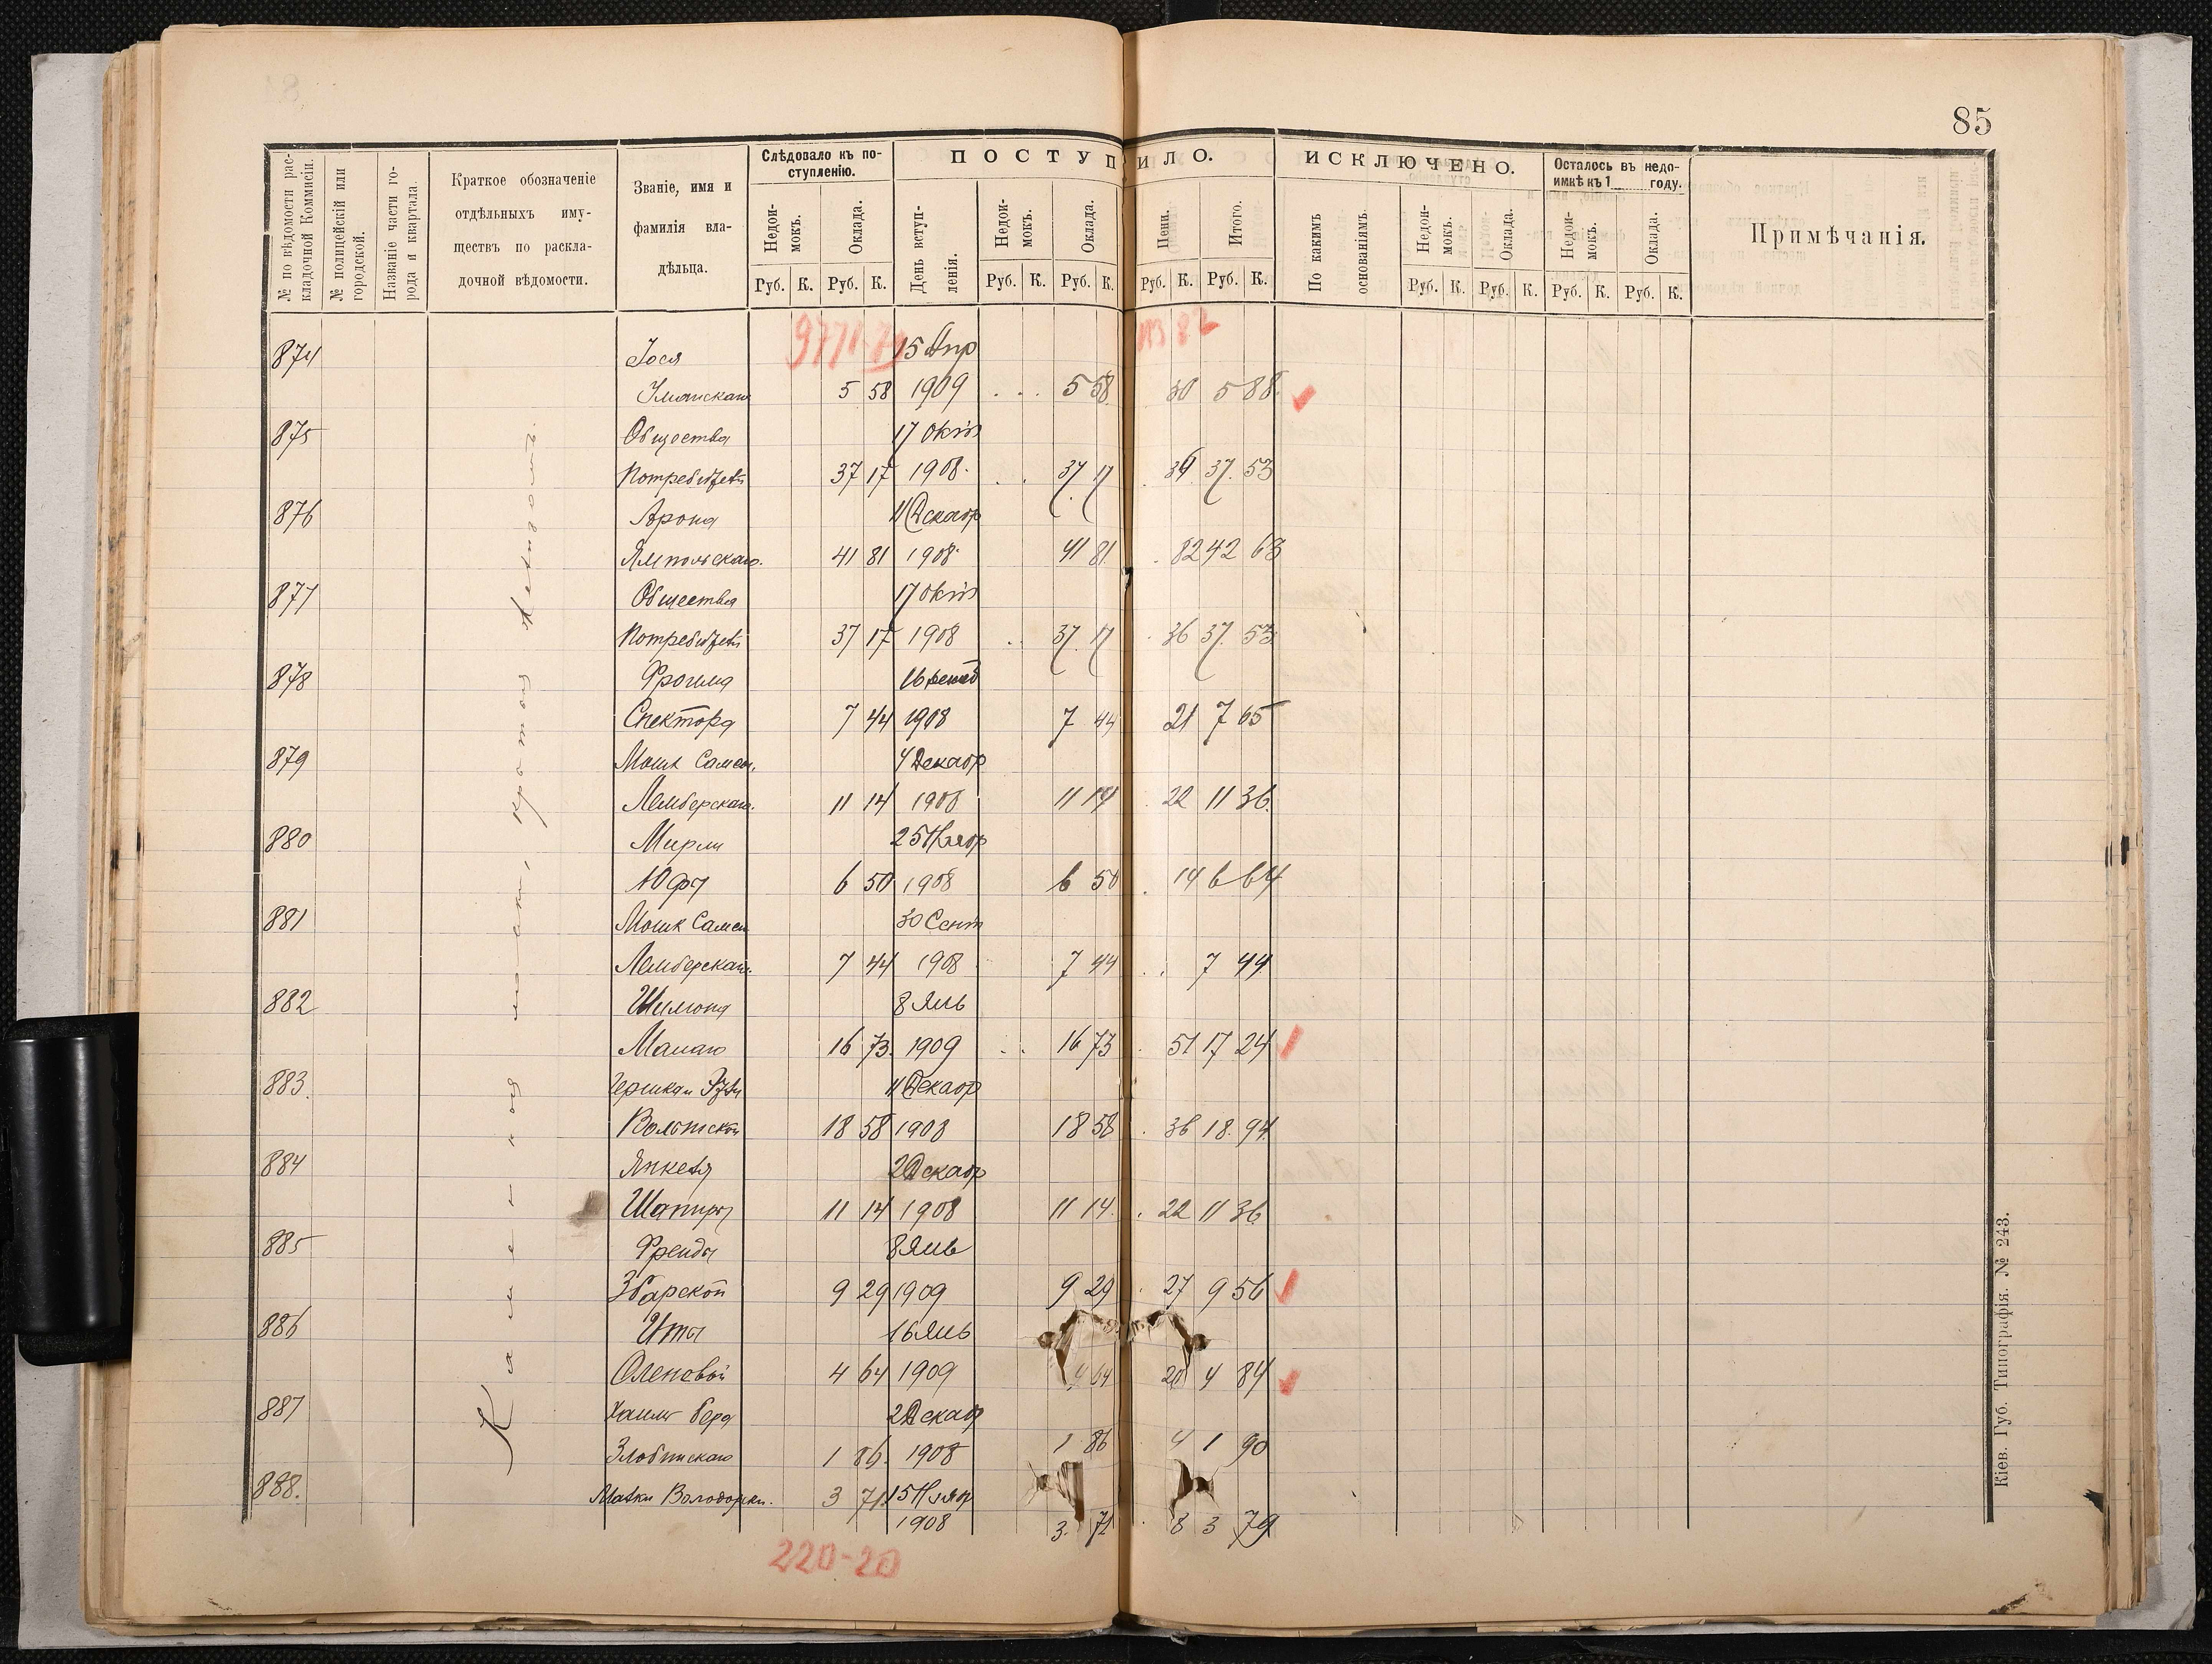 85
№ по вѣдомости раскладочной Коммисіи.
№ полицейскій или городской.
Названіе части города и квартала.
Краткое обозначеніе
отдѣльныхъ иму-
ществъ по раскла-
дочной вѣдомости.
Званіе, имя и
фамилія вла-
дѣльца.
Слѣдовало къ по-
ступленію.
Недои-
мокъ.
Оклада.
ПОСТУПИЛО.
День вступ-
ленія.
Недои-
мокъ.
Оклада.
Пени.
Итого.
ИСКЛЮЧЕНО.
По какимъ
основаніямъ.
Недои-
мокъ.
Оклада.
Осталось въ недо-
имкѣ къ 1 году.
Недои-
мокъ.
Оклада.
Примѣчанія.
Руб. К. Руб. К. Руб. К. Руб. К. Руб. К. Руб. К. Руб. К. Руб. К. Руб. К. Руб. К.
874 Іося 15 Апр
Уманскаго 5 58 1909 5 58 30 5 88
875 Общества 17 Окт
Потребител 37 17 1908 37 17 36 37 53
876 Арона 11 Декабр
Ямпольскаго 41 81 1908 41 81 82 42 63
877 Общества 17 Окт
Потребител 37 17 1908 37 17 36 37 53
878 Фроима 16
Спектора 7 44 1908 7 44 21 7 65
879 Мошк Самсон. 4 Декабр
Лемберскаго 11 14 1908 11 14 22 11 36
880 Мирли 25 Ноябр
Юфы 6 50 1908 6 50 14 6 64
881 Мошк Самсон 30 Сент
Лемберскаго 7 44 1908 7 44 7 44
882 Шимона 8 Янв
16 73 1909 16 73 51 17 24
883. 11 Декабр
18 58 1908 18 58 36 18 94
884 Янкеля 2 Декабр
Шапиры 11 14 1908 11 14 22 11 36
885 Фрейды 8 Янв
Збарской 9 29 1909 9 29 27 9 56
886 Иты 16 Янв
4 64 1909 4 64 20 4 84
887 Хаим Бера 2 Декабр
1 86 1908 1 86 4 1 90
888. Малки 3 71 15 Ноябр
1908 3 71 8 3 79
220-20
Каменная лавка, крытая железомъ.
Кіев. Губ. Типографія. № 243.